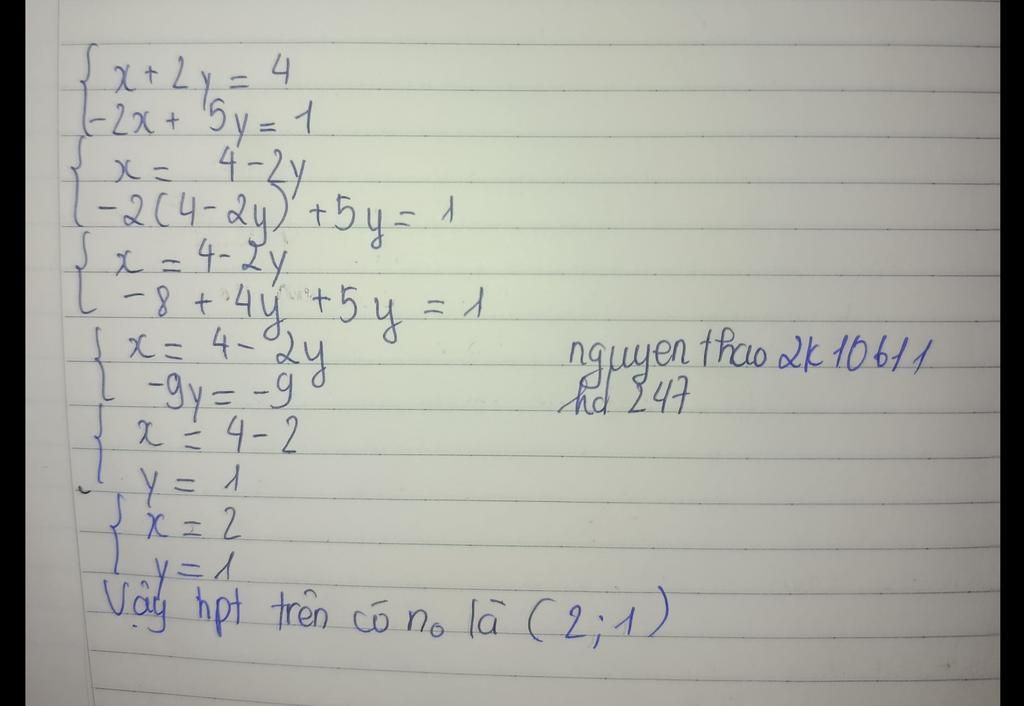 x + 2y = 4
-2x + 5y = 1
x = 4 - 2y
-2(4 - 2y) + 5y = 1
x = 4 - 2y
-8 + 4y + 5y = 1
x = 4 - 2y
-9y = -9
x = 4 - 2
y = 1
x = 2
y = 1
Vậy hpt trên có no là (2;1)
nguyen thao 2k10611
hd 247